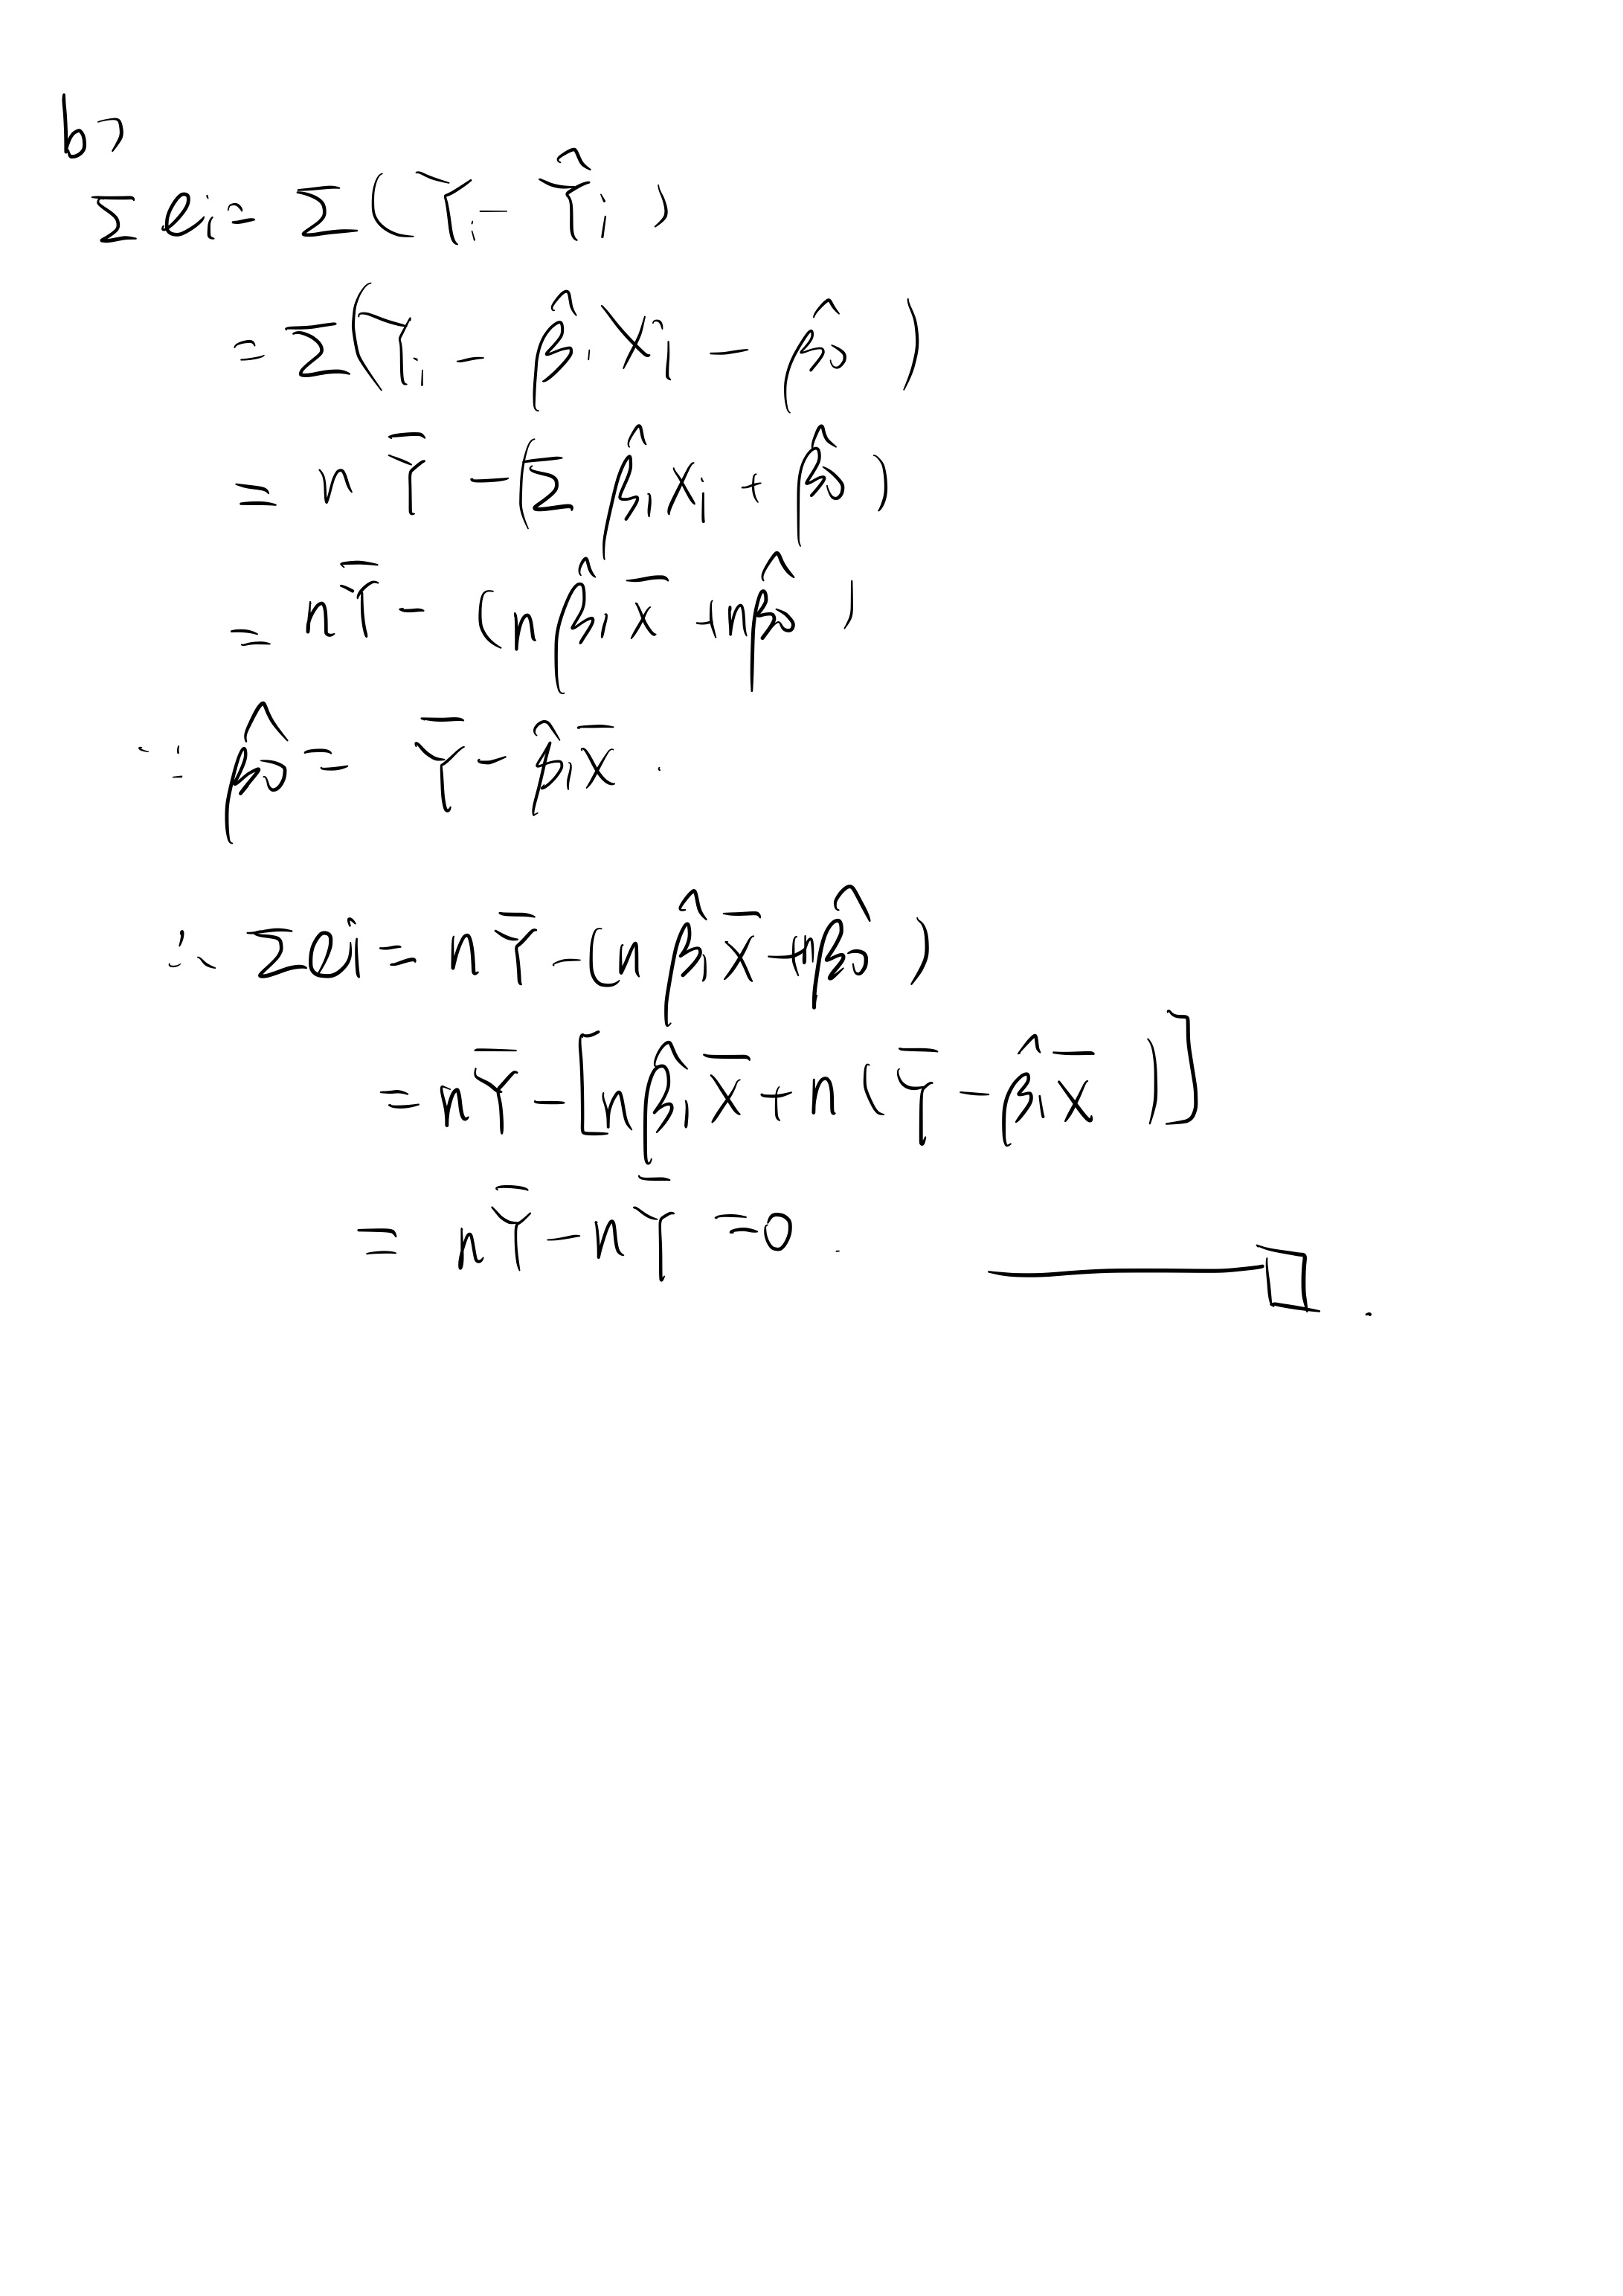 b>
Σ eᵢ = Σ ( Yᵢ − Ŷᵢ )
= Σ ( Yᵢ − β̂₁ Xᵢ − β̂₀ )
= n Ȳ − ( Σ β̂₁ xᵢ + β̂₀ )
= n Ȳ − ( n β̂₁ x̄ + n β̂₀ )
∵ β̂₀ = Ȳ − β̂₁ x̄ .
∴ Σ eᵢ = n Ȳ − ( n β̂₁ x̄ + n β̂₀ )
= n Ȳ − [ n β̂₁ x̄ + n ( Ȳ − β̂₁ x̄ ) ]
= n Ȳ − n Ȳ = 0 . □ .